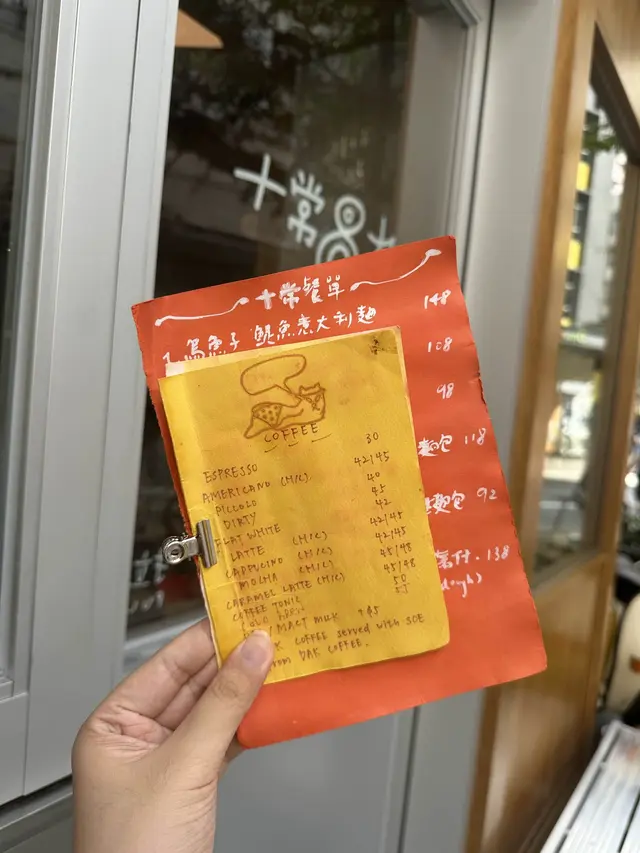 十常
十常餐單
1. 烏魚子鯷魚意大利麵 148
108
98
麵包 118
麵包 92
138
COFFEE
ESPRESSO 30
AMERICANO (H/C) 42/45
PICCOLO 40
DIRTY 45
FLAT WHITE 42
LATTE (H/C) 42/45
CAPPUCINO (H/C) 42/45
MOCHA (H/C) 45/48
CARAMEL LATTE (H/C) 45/48
COFFEE TONIC 50
55
MILK +$5
COFFEE served with SOE
from DAK COFFEE.